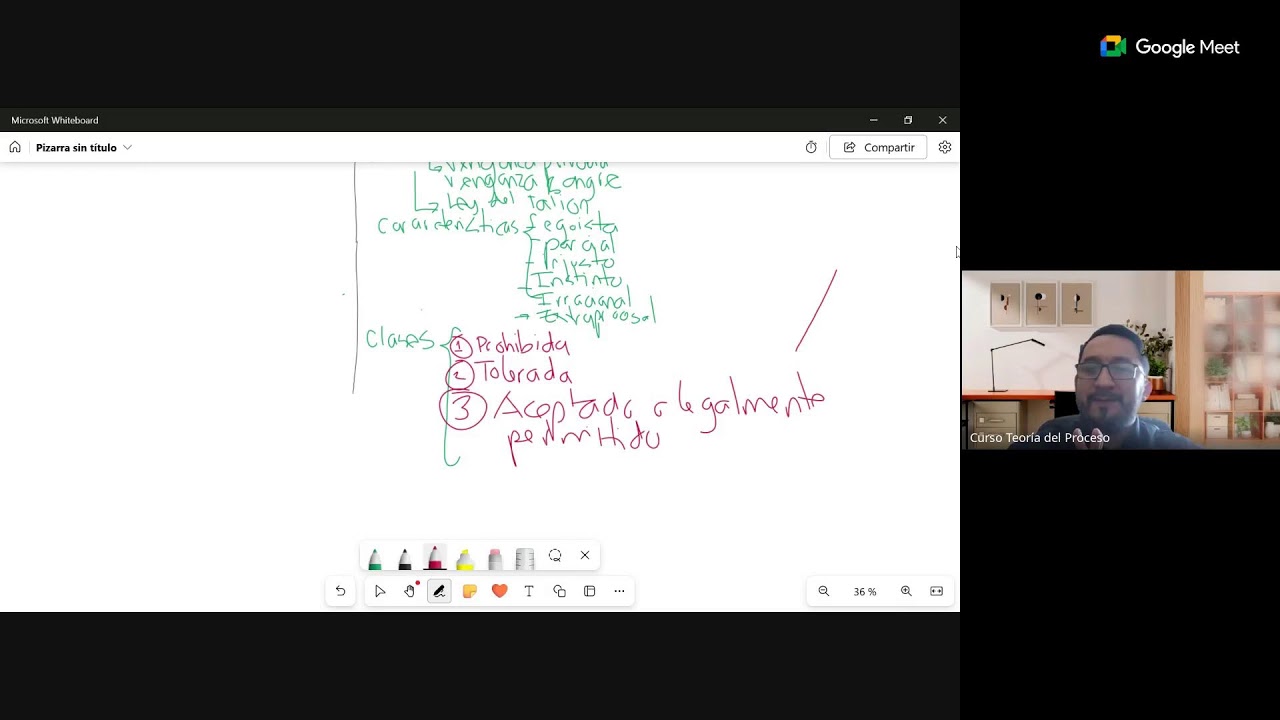 Google Meet
Microsoft Whiteboard
Pizarra sin título
Compartir
venganza
Ley del Talion
Características egoista
parcial
Injusto
Instinto
Irracional
→ Extraprocesal
Clases
1 Prohibida
2 Tolerada
3 Aceptada o legalmente
permitido
Curso Teoría del Proceso
T
36 %